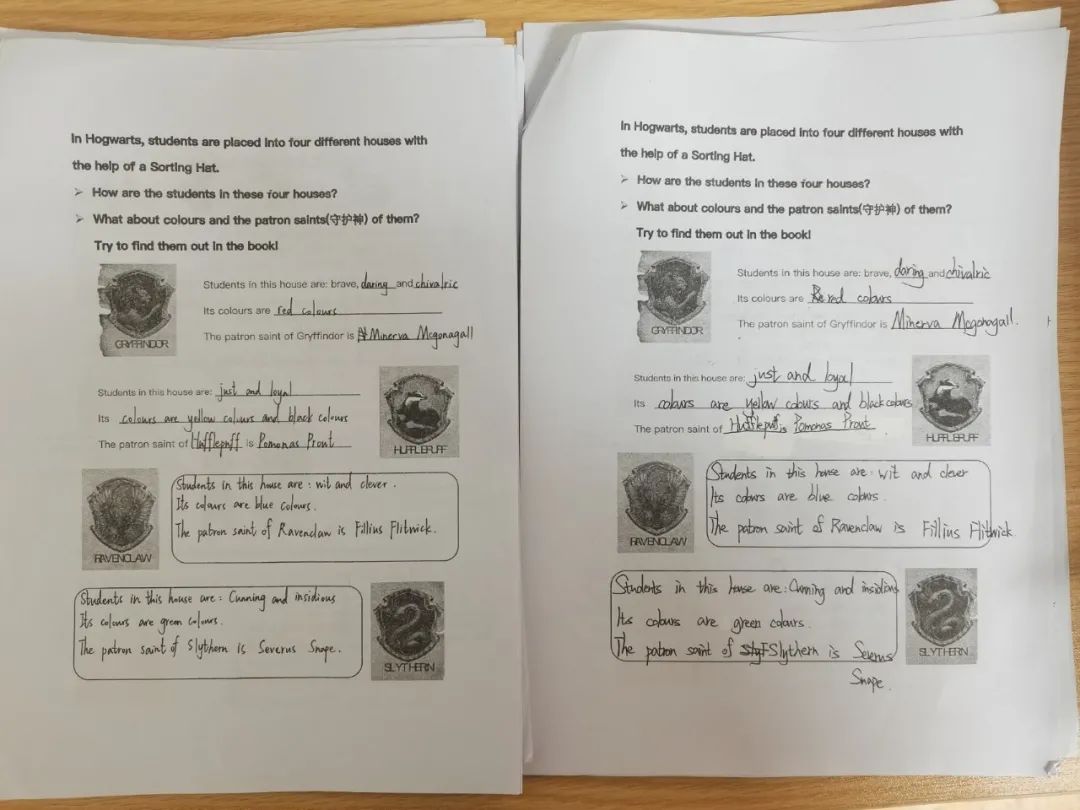 In Hogwarts, students are placed into four different houses with
the help of a Sorting Hat.
➢ How are the students in these four houses?
➢ What about colours and the patron saints(守护神) of them?
Try to find them out in the book!
GRYFFINDOR
Students in this house are: brave, daring and chivalric
Its colours are red colours
The patron saint of Gryffindor is Minerva Mcgonagall
Students in this house are: just and loyal
Its colours are yellow colours and black colours
The patron saint of Hufflepuff is Pomonas Prout
HUFFLEPUFF
RAVENCLAW
Students in this house are : wit and clever .
Its colours are blue colours.
The patron saint of Ravenclaw is Fillius Flitwick.
Students in this house are : Cunning and insidious
Its colours are green colours.
The patron saint of Slythern is Severus Snape.
SLYTHERN
In Hogwarts, students are placed into four different houses with
the help of a Sorting Hat.
➢ How are the students in these four houses?
➢ What about colours and the patron saints(守护神) of them?
Try to find them out in the book!
GRYFFINDOR
Students in this house are: brave, daring and chivalric
Its colours are red colours
The patron saint of Gryffindor is Minerva Mcgonagall.
Students in this house are: just and loyal
Its colours are yellow colours and black colours
The patron saint of Hufflepuff is Pomonas Prout
HUFFLEPUFF
RAVENCLAW
Students in this house are : wit and clever
Its colours are blue colours.
The patron saint of Ravenclaw is Fillius Flitwick.
Students in this house are : Cunning and insidious
Its colours are green colours.
The patron saint of Slythern is Severus
Snape.
SLYTHERN